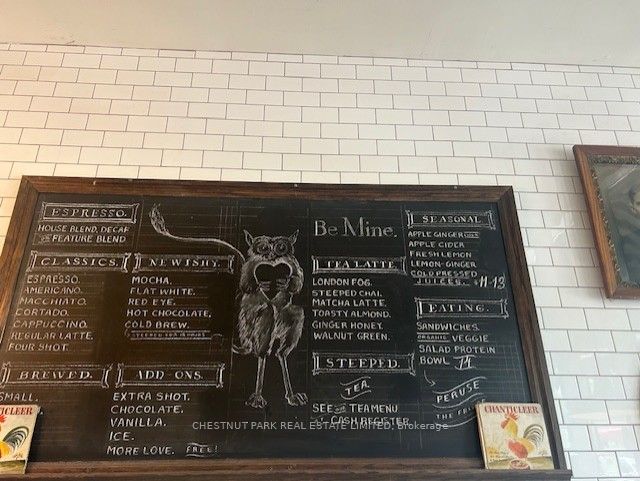 ESPRESSO.
HOUSE BLEND, DECAF
OR FEATURE BLEND
CLASSICS.
ESPRESSO.
AMERICANO.
MACCHIATO.
CORTADO.
CAPPUCCINO.
REGULAR LATTE.
FOUR SHOT.
NEWISHY.
MOCHA.
FLAT WHITE.
RED EYE.
HOT CHOCOLATE,
COLD BREW.
STEEPED FOR 18 HOURS
BREWED.
SMALL.
ADD-ONS
EXTRA SHOT.
CHOCOLATE.
VANILLA.
ICE.
MORE LOVE. FREE!
Be Mine.
TEA LATTE
LONDON FOG.
STEEPED CHAI.
MATCHA LATTE.
TOASTY ALMOND.
GINGER HONEY.
WALNUT GREEN.
STEEPED.
TEA.
SEE OUR TEA MENU
CASH REGISTER
SEASONAL
APPLE GINGER
APPLE CIDER
FRESH LEMON
LEMON-GINGER
COLD PRESSED
JUICES. 11-13
EATING.
SANDWICHES.
ORGANIC VEGGIE
SALAD PROTEIN
BOWL 11
PERUSE
THE
CHANTICLEER
CHANTICLEER
CHESTNUT PARK REAL ESTATE LIMITED, Brokerage